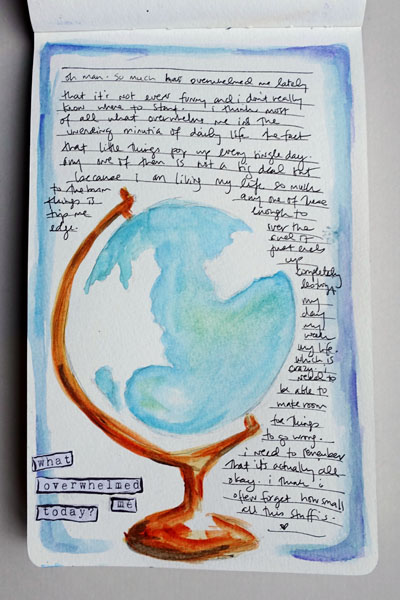 oh man. so much has overwhelmed me lately
that it's not even funny and i don't really
know where to start. i think most
of all what overwhelms me is the
unending minutia of daily life. the fact
that little things pop up every single day.
any one of them is not a big deal but
because i am living my life so much
to the brim any one of these
things is enough to
tip me over the
edge. and it
just ends
up
completely
destroys
my
day
my
week
my life.
which is
crazy. i
need to
be able to
make room
for things
to go wrong.
i need to remember
that it's actually all
okay. i think i
often forget how small
all this stuff is.
what
overwhelmed
me
today?